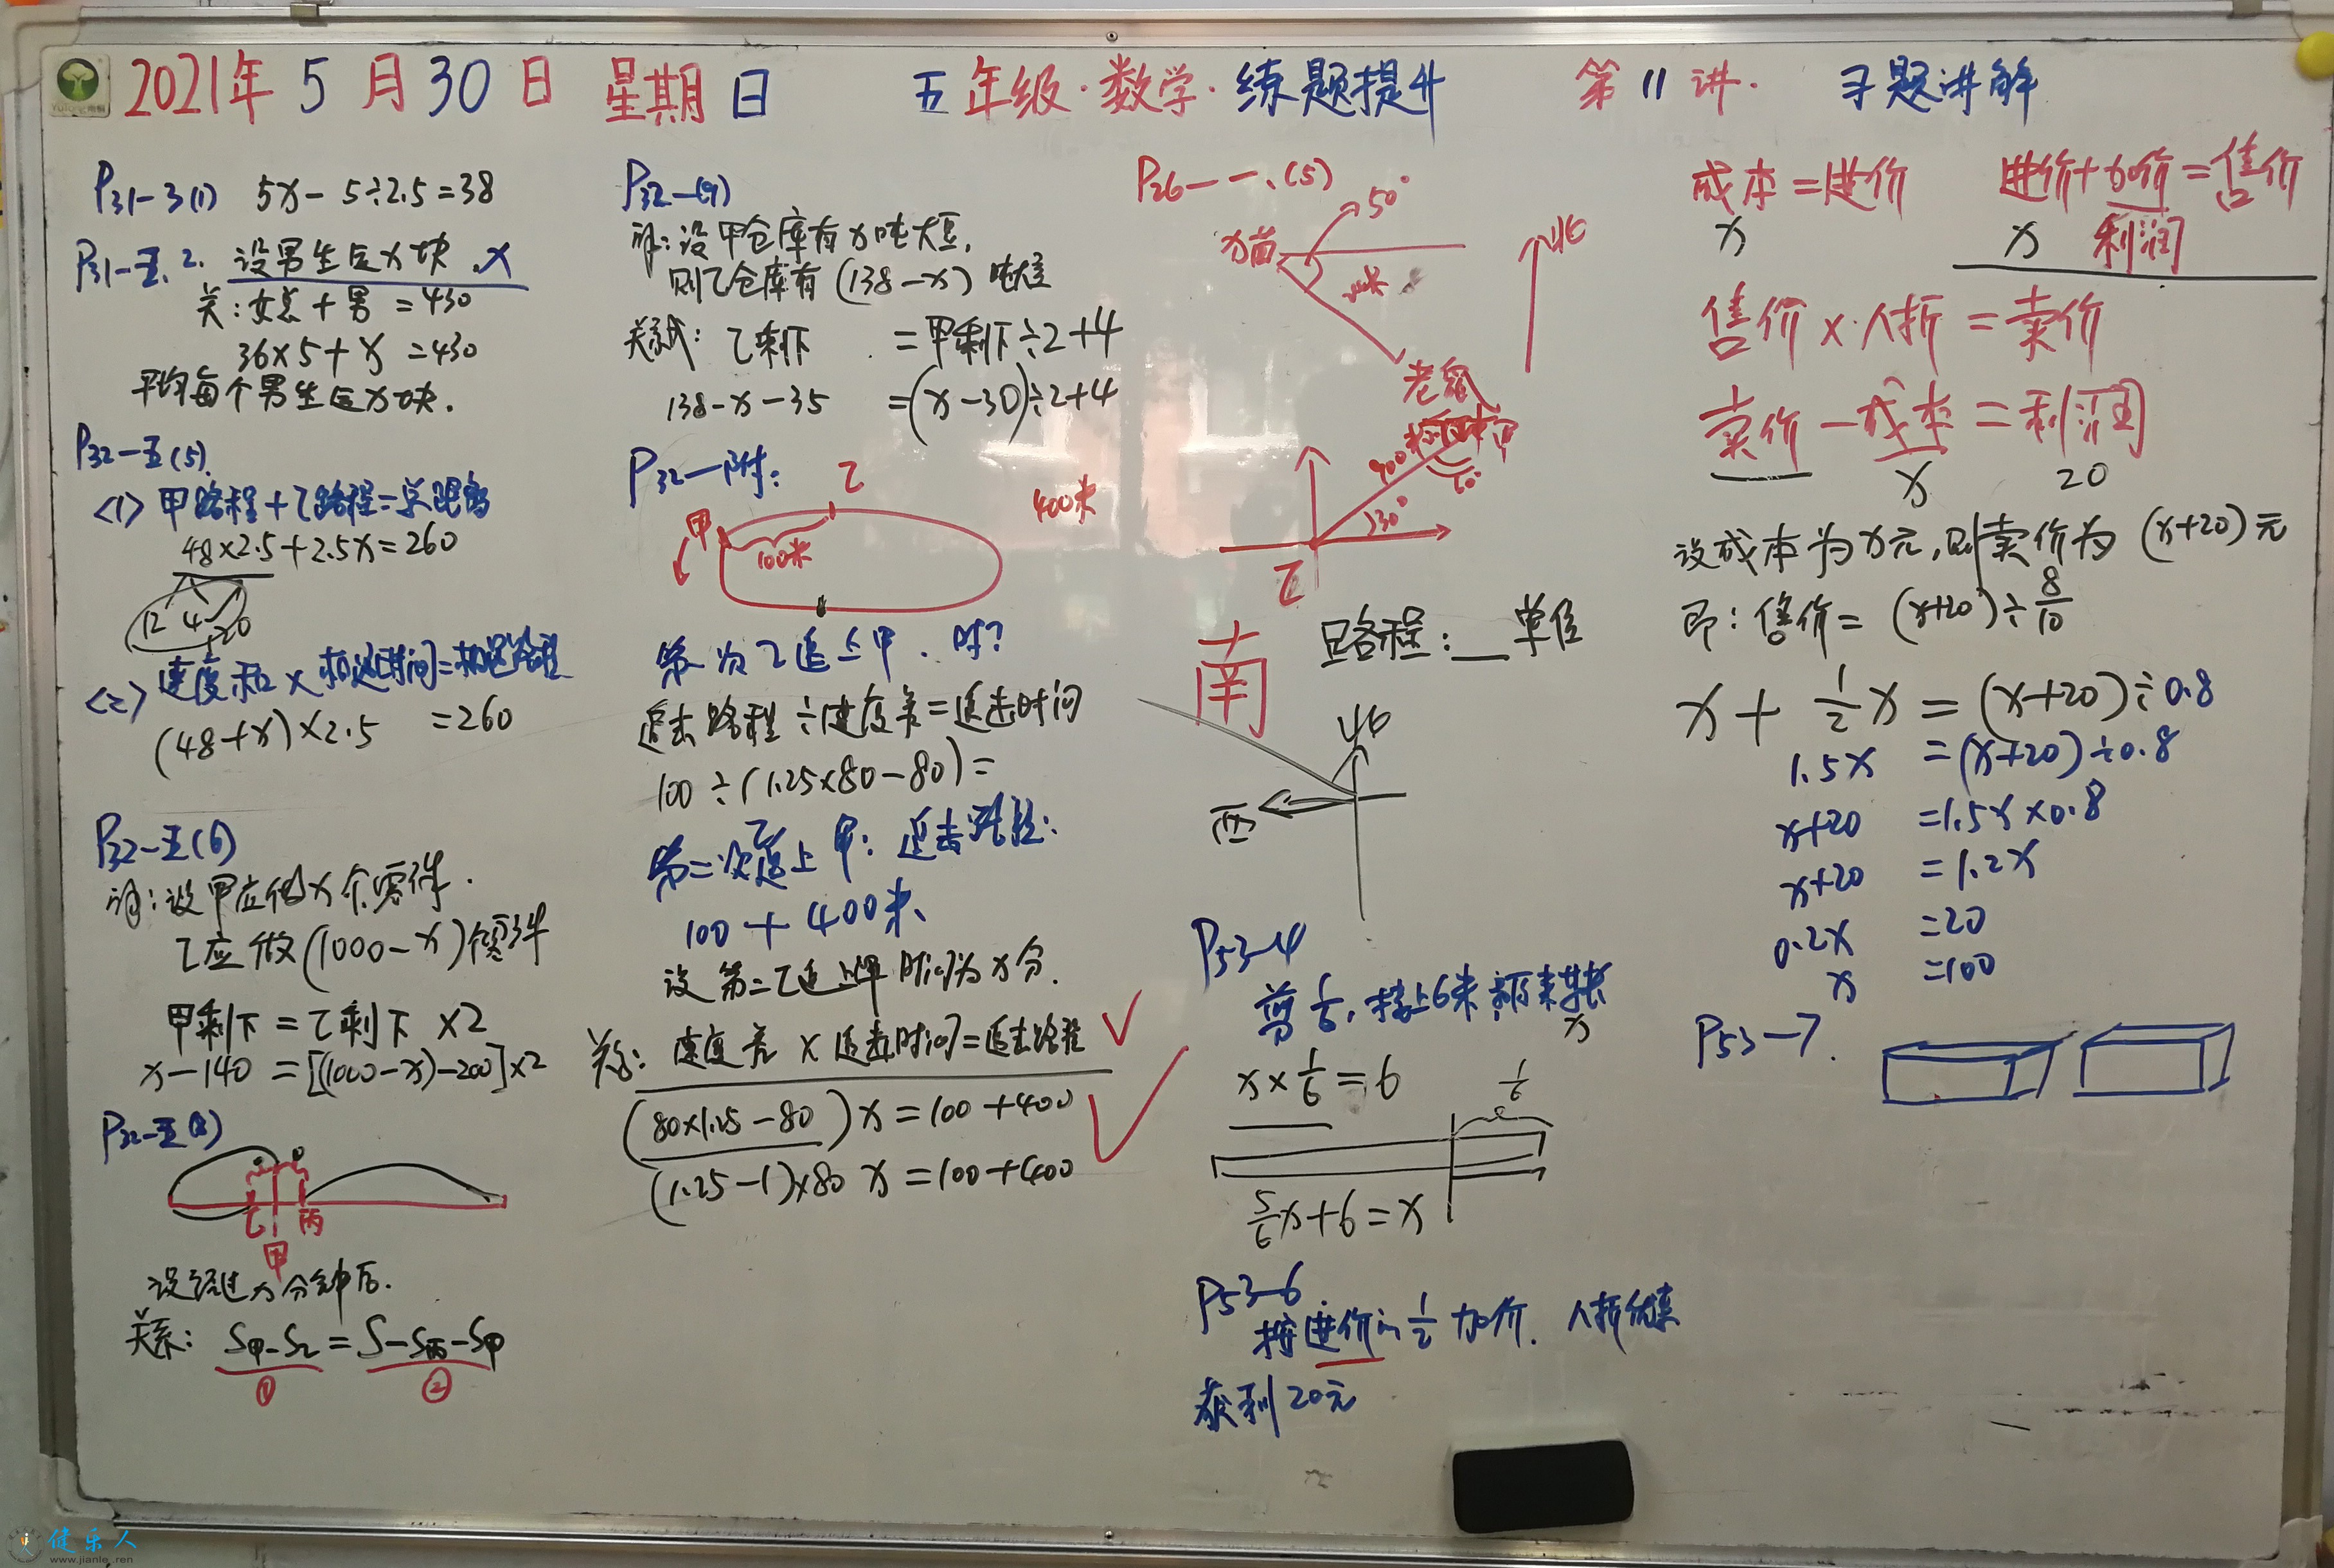 2021年5月30日 星期日 五年级·数学·练题提升 第11讲· 习题讲解
P31-3(1) 5x-5÷2.5=38
P31-五.2. 设男生运x块.x
关:女总+男=430
36×5+x=430
平均每个男生运x块.
P32-五(5)
<1>甲路程+乙路程=总距离
48×2.5+2.5x=260
12 4 20
<2>速度和×相遇时间=相遇路程
(48+x)×2.5=260
P32-五(6)
解:设甲应做x个零件.
乙应做(1000-x)零件
甲剩下=乙剩下×2
x-140=[(1000-x)-200]×2
P32-五(8)
乙 丙
甲
设经过x分钟后.
关系:S甲-S乙=S-S丙-S甲
① ②
P32-(9)
解:设甲仓库有x吨大豆,
则乙仓库有(138-x)吨大豆
关系式: 乙剩下=甲剩下÷2+4
138-x-35=(x-30)÷2+4
P32-附:
乙
甲
100米
400米
第一次乙追上甲.时?
追击路程÷速度差=追击时间
100÷(1.25×80-80)=
第二次乙追上甲:追击路程:
100+400米
设第二乙追上甲时间为x分.
关系:速度差×追击时间=追击路程
(80×1.25-80)x=100+400
(1.25-1)×80x=100+400
P26-一、(5)
50°
北
老鼠
900米
甲
60
30°
乙
南
路程:__单位
北
西
P53-4
剪1/6,接上6米,
x
x×1/6=6
1/6
5/6x+6=x
P53-6.
按进价的1/2加价.八折优惠
获利20元
成本=进价 进价+加价=售价
x x 利润
售价×八折=卖价
卖价-成本=利润
x 20
设成本为x元,则卖价为(x+20)元
即:售价=(x+20)÷8/10
x+1/2x=(x+20)÷0.8
1.5x=(x+20)÷0.8
x+20=1.5x×0.8
x+20=1.2x
0.2x=20
x=100
P53-7.
健乐人
www.jianle.ren